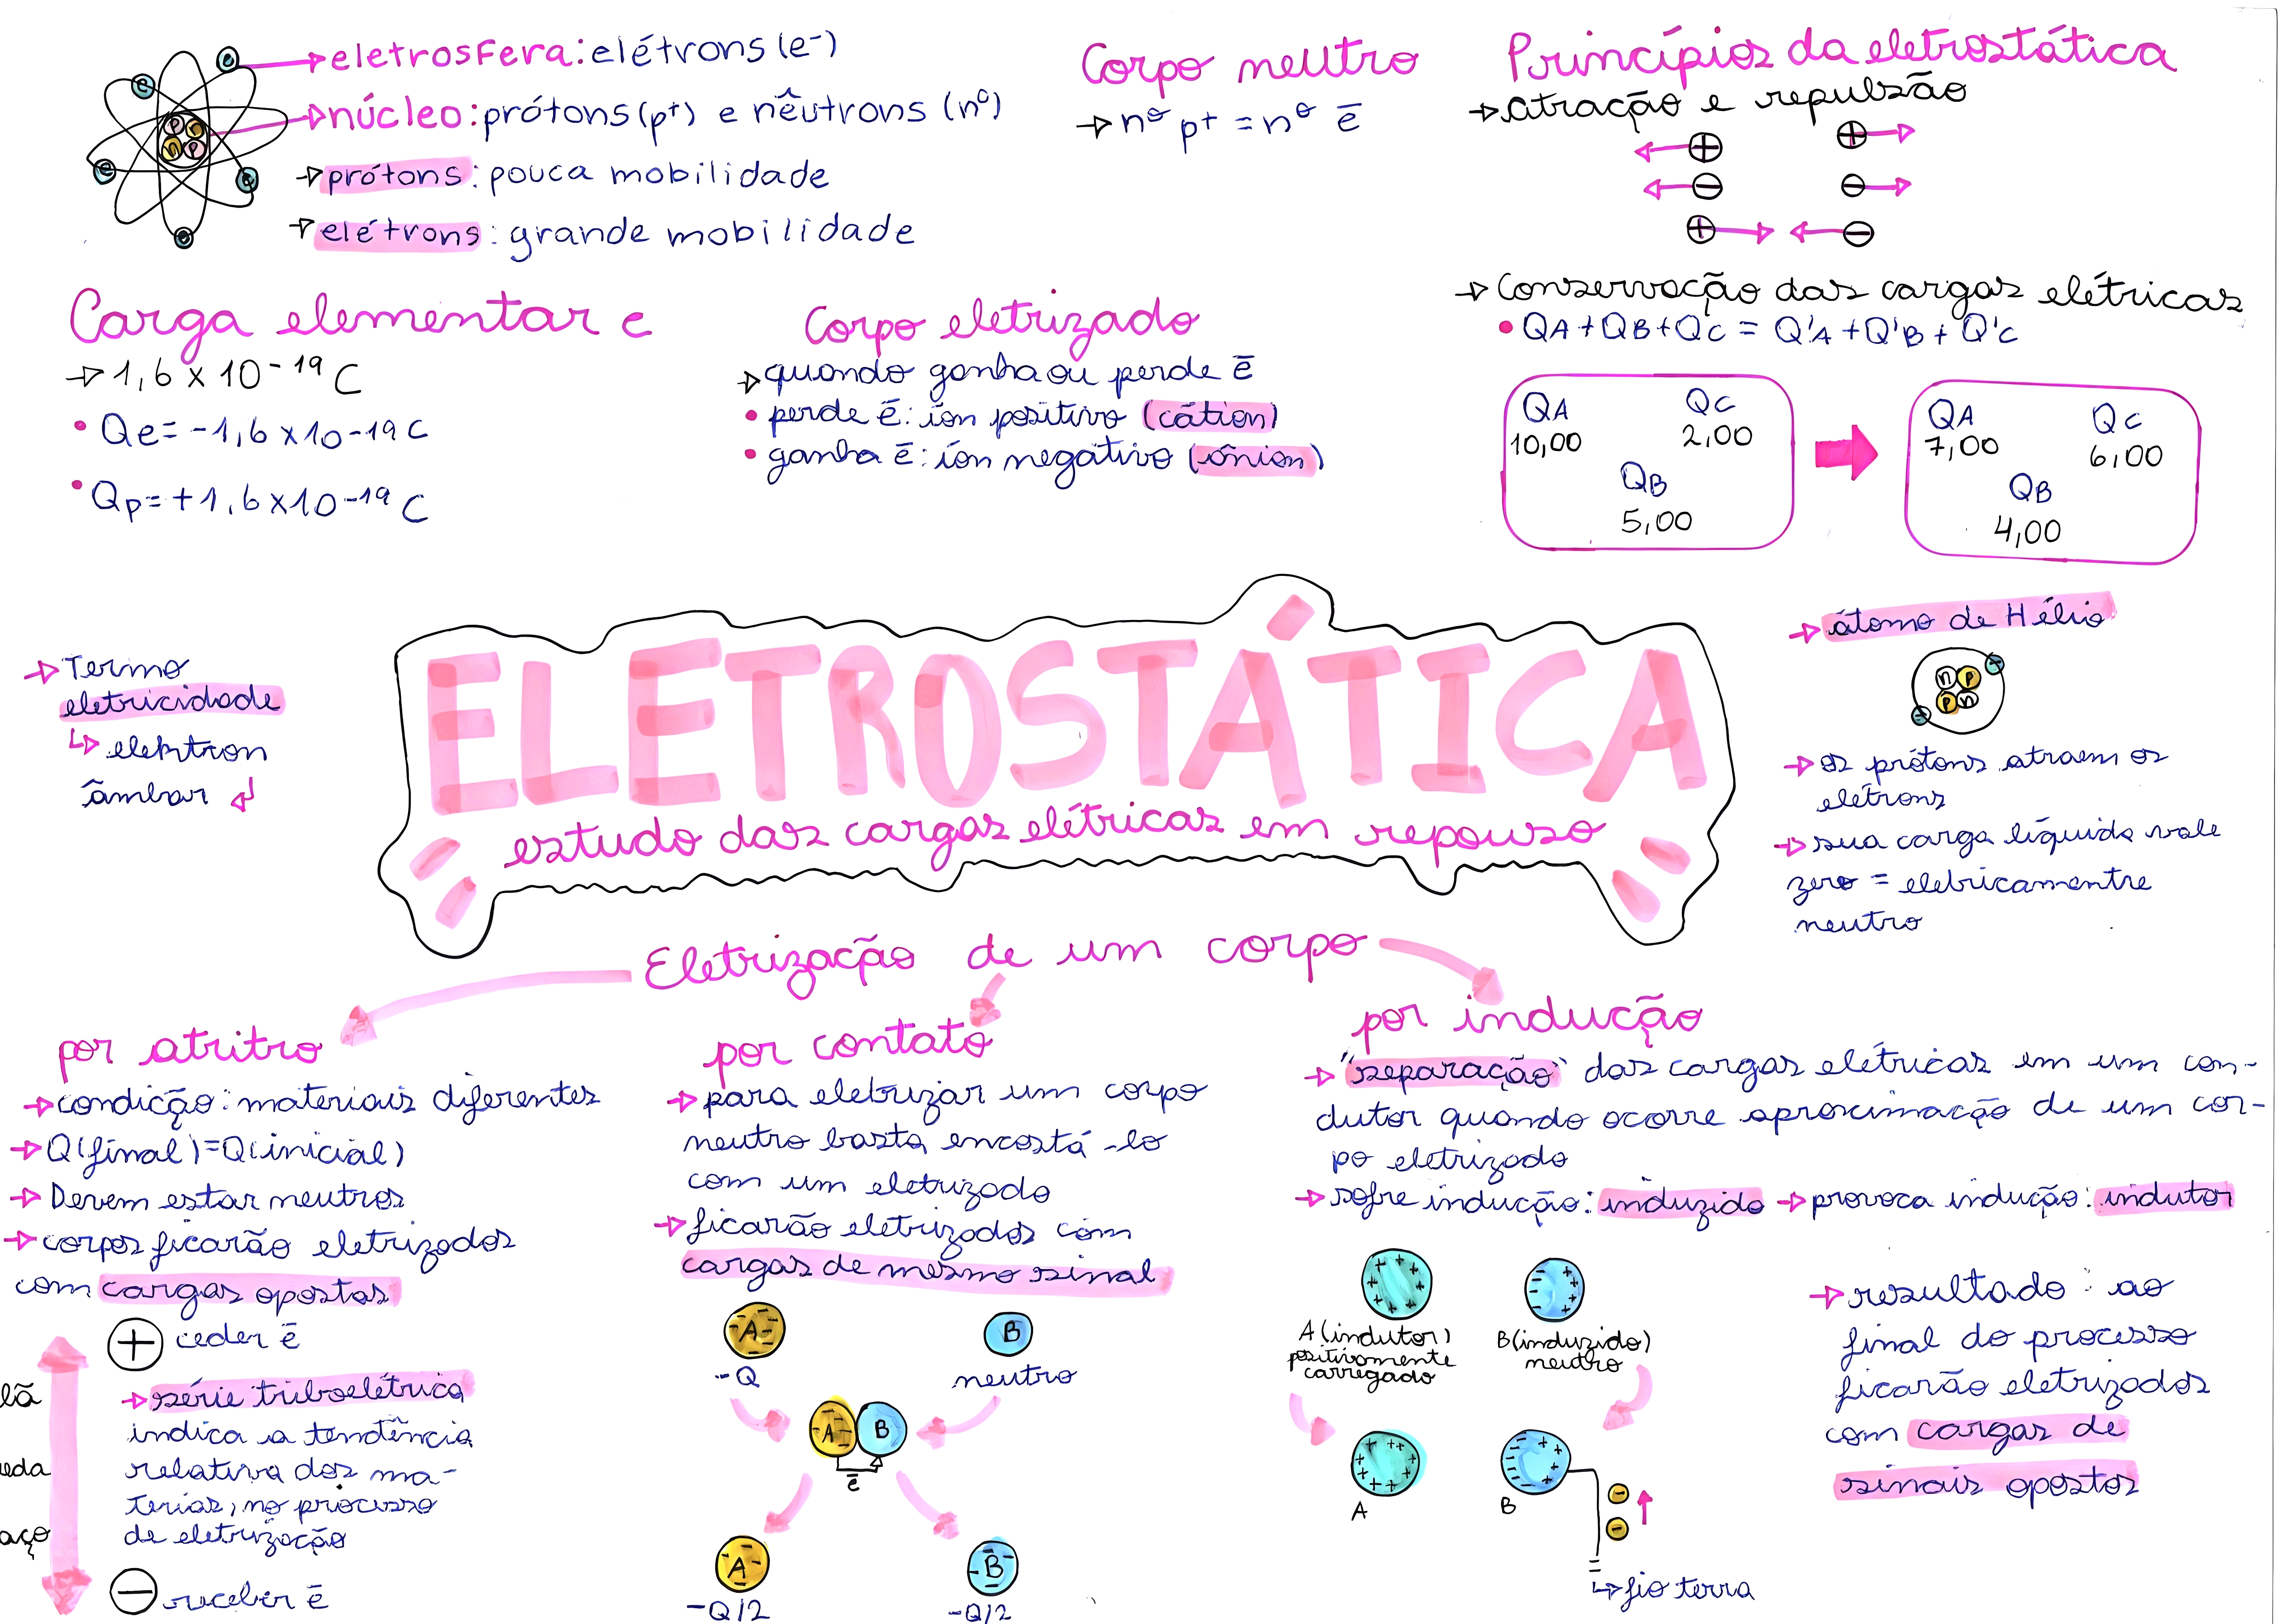 eletrosfera: elétrons (e-)
núcleo: prótons (p+) e nêutrons (n⁰)
prótons: pouca mobilidade
elétrons: grande mobilidade
e
e
e
e
e
p n
n p
Corpo neutro
nº p+ = nº ē
Princípios da eletrostática
atração e repulsão
+ +
- -
+ -
Conservação das cargas elétricas
• QA + QB + QC = Q'A + Q'B + Q'C
QA QC
10,00 2,00
QB
5,00
QA QC
7,00 6,00
QB
4,00
Carga elementar e
1,6 x 10⁻¹⁹ C
• Qe = -1,6 x 10-19 C
• Qp = +1,6 x 10-19 C
Corpo eletrizado
quando ganha ou perde ē
• perde ē: íon positivo (cátion)
• ganha ē: íon negativo (ânion)
Termo
eletricidade
elektron
âmbar
ELETROSTÁTICA
estudo das cargas elétricas em repouso
átomo de Hélio
n p
p n
- -
os prótons atraem os
elétrons
sua carga líquida vale
zero = eletricamentre
neutro
Eletrização de um corpo
por atritro
condição: materiais diferentes
Q(final) = Q(inicial)
Devem estar neutros
corpos ficarão eletrizados
com cargas opostas
+ ceder ē
lã
eda
aço
série triboelétrica
indica a tendência
relativa dos ma-
terias, no processo
de eletrização
- receber ē
por contato
para eletrizar um corpo
neutro basta encostá-lo
com um eletrizado
ficarão eletrizados com
cargas de mesmo sinal
A B
-Q neutro
A B
ē
A B
-Q/2 -Q/2
por indução
"separação" das cargas elétricas em um con-
dutor quando ocorre aproximação de um cor-
po eletrizado
sofre indução: induzido provoca indução: indutor
A (indutor)
positivamente
carregado
B (induzido)
neutro
A B
- -
fio terra
resultado: ao
final do processo
ficarão eletrizados
com cargas de
sinais opostos